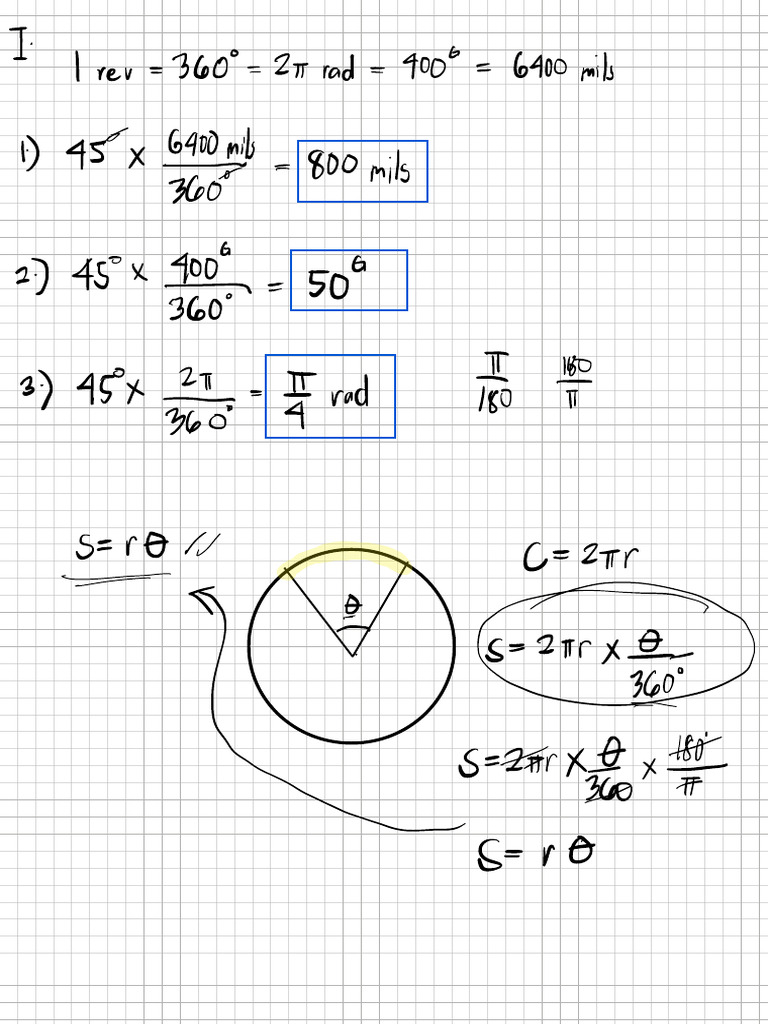 I.
1 rev = 360° = 2π rad = 400ᴳ = 6400 mils
1.) 45° × 6400 mils / 360° = 800 mils
2.) 45° × 400ᴳ / 360° = 50ᴳ
3.) 45° × 2π / 360° = π/4 rad
π/180 180/π
S = rθ
θ
C = 2πr
S = 2πr × θ/360°
S = 2πr × θ/360 × 180°/π
S = rθ